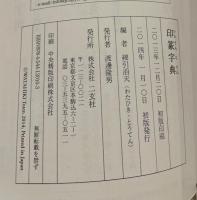 印篆字典
二〇一三年一二月二〇日 初版印刷
二〇一四年 一月一〇日 初版発行
編者 綿引滔天(わたひき・とうてん)
発行者 渡邊隆男
発行所 株式会社 二玄社
東京都文京区本駒込六-二-一
電話 〇三-五三九五-〇五一一
印刷 中央精版印刷株式会社
無断転載を禁ず
©WATAHIKI Toten, 2014, Printed in Japan